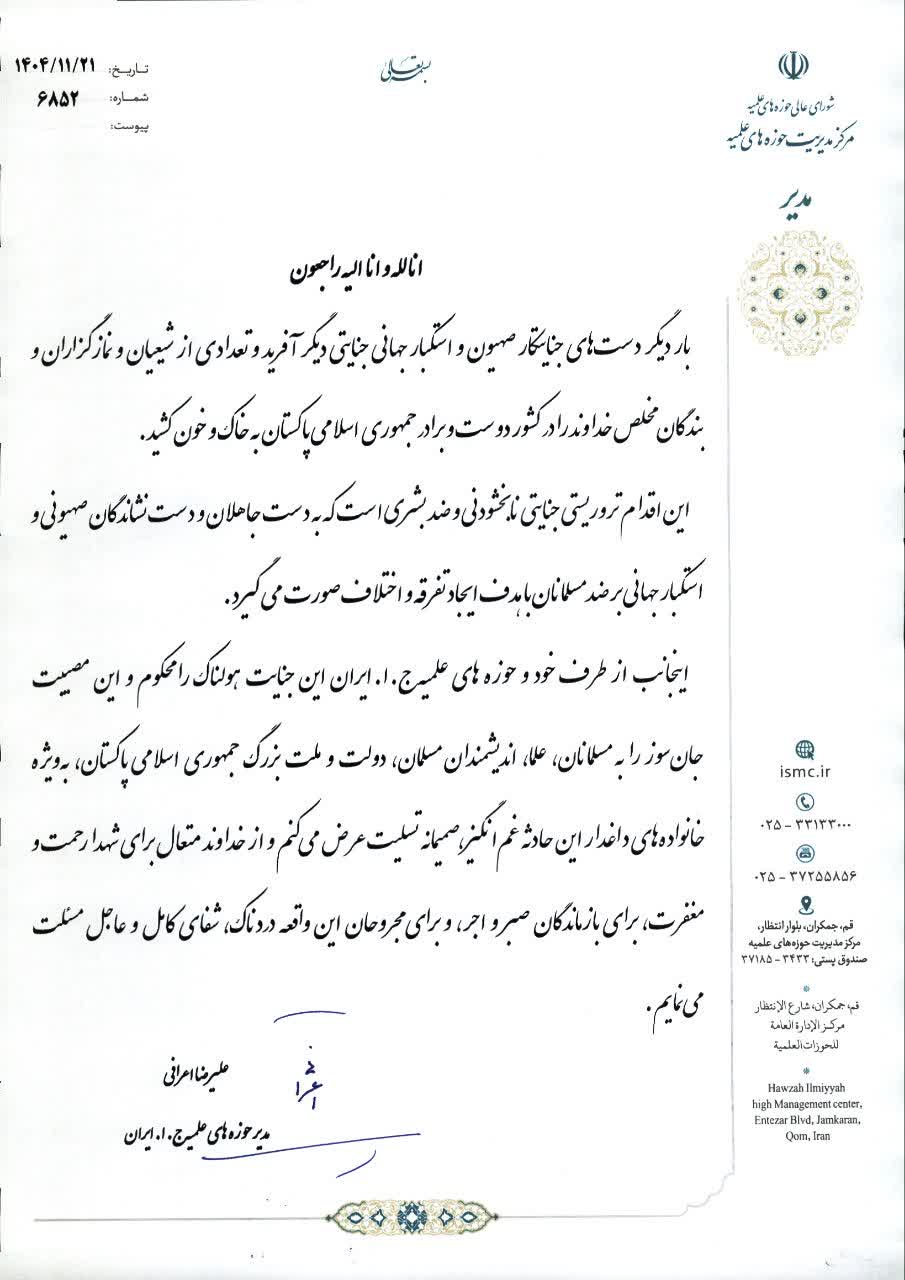 بسمه تعالی
شورای عالی حوزه های علمیه
مرکز مدیریت حوزه های علمیه
مدیر
تاریخ: ۱۴۰۴/۱۱/۲۱
شماره: ۶۸۵۲
پیوست:
انا لله و انا الیه راجعون
بار دیگر دست‌های جنایتکار صهیون و استکبار جهانی جنایتی دیگر آفرید و تعدادی از شیعیان و نمازگزاران و
بندگان مخلص خداوند را در کشور دوست و برادر جمهوری اسلامی پاکستان به خاک و خون کشید.
این اقدام تروریستی جنایتی نابخشودنی و ضد بشری است که به دست جاهلان و دست نشاندگان صهیونی و
استکبار جهانی بر ضد مسلمانان با هدف ایجاد تفرقه و اختلاف صورت می گیرد.
اینجانب از طرف خود و حوزه های علمیه ج.ا. ایران این جنایت هولناک را محکوم و این مصیبت
جان سوز را به مسلمانان، علما، اندیشمندان مسلمان، دولت و ملت بزرگ جمهوری اسلامی پاکستان، به‌ویژه
خانواده های داغدار این حادثه غم انگیز، صمیمانه تسلیت عرض می کنم و از خداوند متعال برای شهدا رحمت و
مغفرت، برای بازماندگان صبر و اجر، و برای مجروحان این واقعه دردناک، شفای کامل و عاجل مسئلت
می نمایم.
علیرضا اعرافی
مدیر حوزه های علمیه ج.ا. ایران
ismc.ir
۰۲۵ – ۳۳۱۳۳۰۰۰
۰۲۵ – ۳۷۲۵۵۸۵۶
قم، جمکران، بلوار انتظار،
مرکز مدیریت حوزه‌های علمیه
صندوق پستی: ۳۴۳۳ – ۳۷۱۸۵
قم، جمکران، شارع الإنتظار
مرکز الإدارة العامة
للحوزات العلمیة
Hawzah Ilmiyyah
high Management center,
Entezar Blvd, Jamkaran,
Qom, Iran